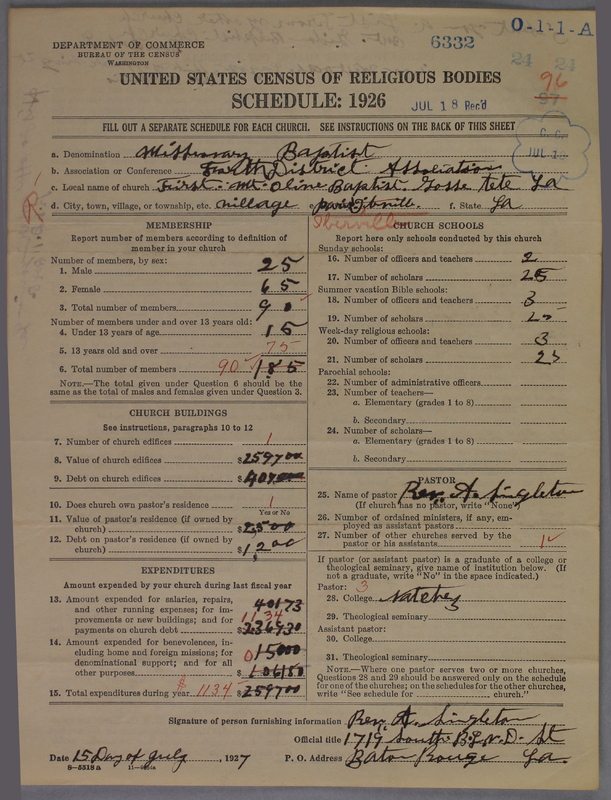 DEPARTMENT OF COMMERCE
BUREAU OF THE CENSUS
WASHINGTON
6332
O-1-1-A
24 24
96
97
UNITED STATES CENSUS OF RELIGIOUS BODIES
SCHEDULE: 1926
JUL 18 Rec'd
FILL OUT A SEPARATE SCHEDULE FOR EACH CHURCH. SEE INSTRUCTIONS ON THE BACK OF THIS SHEET
a. Denomination Missionary Baptist
b. Association or Conference Fourth District Association
c. Local name of church First Mt. Oline Baptist Gosse Tete La
d. City, town, village, or township, etc. village f. State La
Iberville
MEMBERSHIP
Report number of members according to definition of
member in your church
Number of members, by sex:
1. Male 25
2. Female 65
3. Total number of members 90
Number of members under and over 13 years old:
4. Under 13 years of age 15
5. 13 years old and over 75
6. Total number of members 90 185
NOTE.—The total given under Question 6 should be the
same as the total of males and females given under Question 3.
CHURCH BUILDINGS
See instructions, paragraphs 10 to 12
7. Number of church edifices 1
8. Value of church edifices $259700
9. Debt on church edifices $
10. Does church own pastor's residence 1
Yes or No
11. Value of pastor's residence (if owned by
church) $2500
12. Debt on pastor's residence (if owned by
church) $1,200
EXPENDITURES
Amount expended by your church during last fiscal year
13. Amount expended for salaries, repairs,
and other running expenses; for im-
provements or new buildings; and for
payments on church debt $
40173
1134
14. Amount expended for benevolences, in-
cluding home and foreign missions; for
denominational support; and for all
other purposes $
015000
15. Total expenditures during year $ 1134 $259700
CHURCH SCHOOLS
Report here only schools conducted by this church
Sunday schools:
16. Number of officers and teachers 2
17. Number of scholars 25
Summer vacation Bible schools:
18. Number of officers and teachers 3
19. Number of scholars 25
Week-day religious schools:
20. Number of officers and teachers 3
21. Number of scholars 25
Parochial schools:
22. Number of administrative officers
23. Number of teachers—
a. Elementary (grades 1 to 8)
b. Secondary
24. Number of scholars—
a. Elementary (grades 1 to 8)
b. Secondary
PASTOR
25. Name of pastor Rev. A. Singleton
(If church has no pastor, write "None")
26. Number of ordained ministers, if any, em-
ployed as assistant pastors
27. Number of other churches served by the
pastor or his assistants 1
If pastor (or assistant pastor) is a graduate of a college or
theological seminary, give name of institution below. (If
not a graduate, write "No" in the space indicated.)
Pastor: 3
28. College Natchez
29. Theological seminary
Assistant pastor:
30. College
31. Theological seminary
NOTE.—Where one pastor serves two or more churches,
Questions 28 and 29 should be answered only on the schedule
for one of the churches; on the schedules for the other churches,
write "See schedule for church."
Signature of person furnishing information Rev. A. Singleton
Official title 1719 South B.L.V.D. St
Date 15 Day of July, 1927 P. O. Address Baton Rouge La.
8—5518a